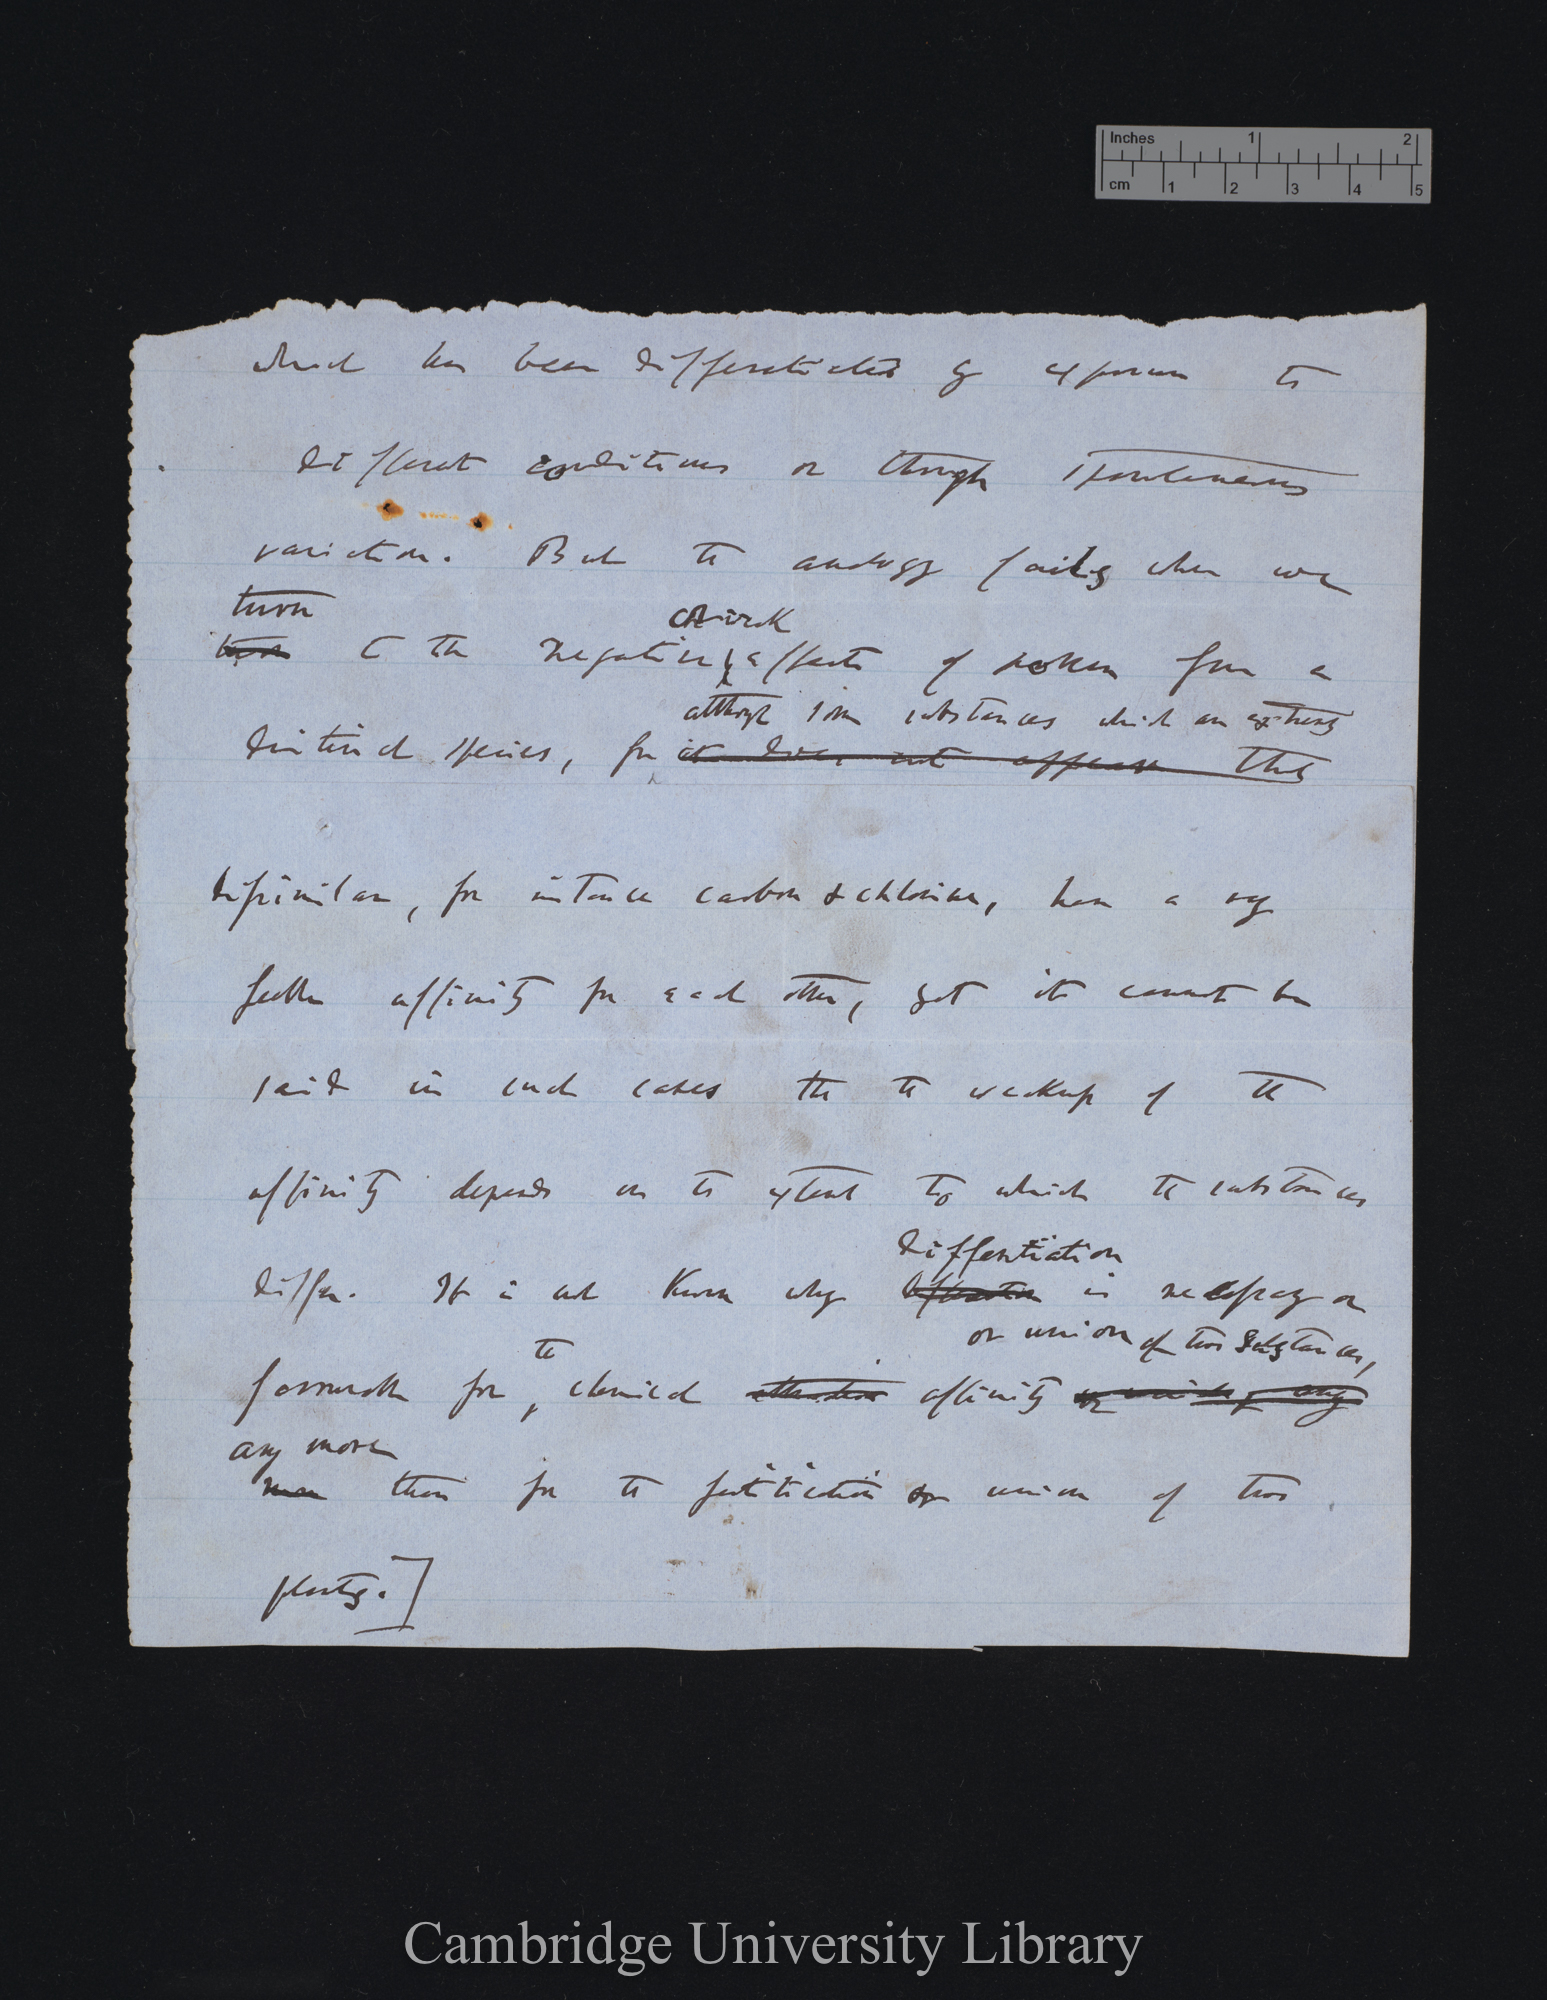 Inches 1 2
cm 1 2 3 4 5
which has been differentiated by exposure to
different conditions or through spontaneous
variation. But the analogy fails when we
turn
turn to the negative effects of pollen from a
although some substances which are extremely
distinct species, for it does not appear that
dissimilar, for instance carbon & chlorine, have a very
feeble affinity for each other, yet it cannot be
said in such cases that the weakness of the
affinity depends on the extent to which the substances
differentiation
differ. It is not known why is necessary or
or union of two substances,
the
favourable for chemical attraction affinity or union of any
any more
more than for the fertilisation or union of two
plants.]
Cambridge University Library